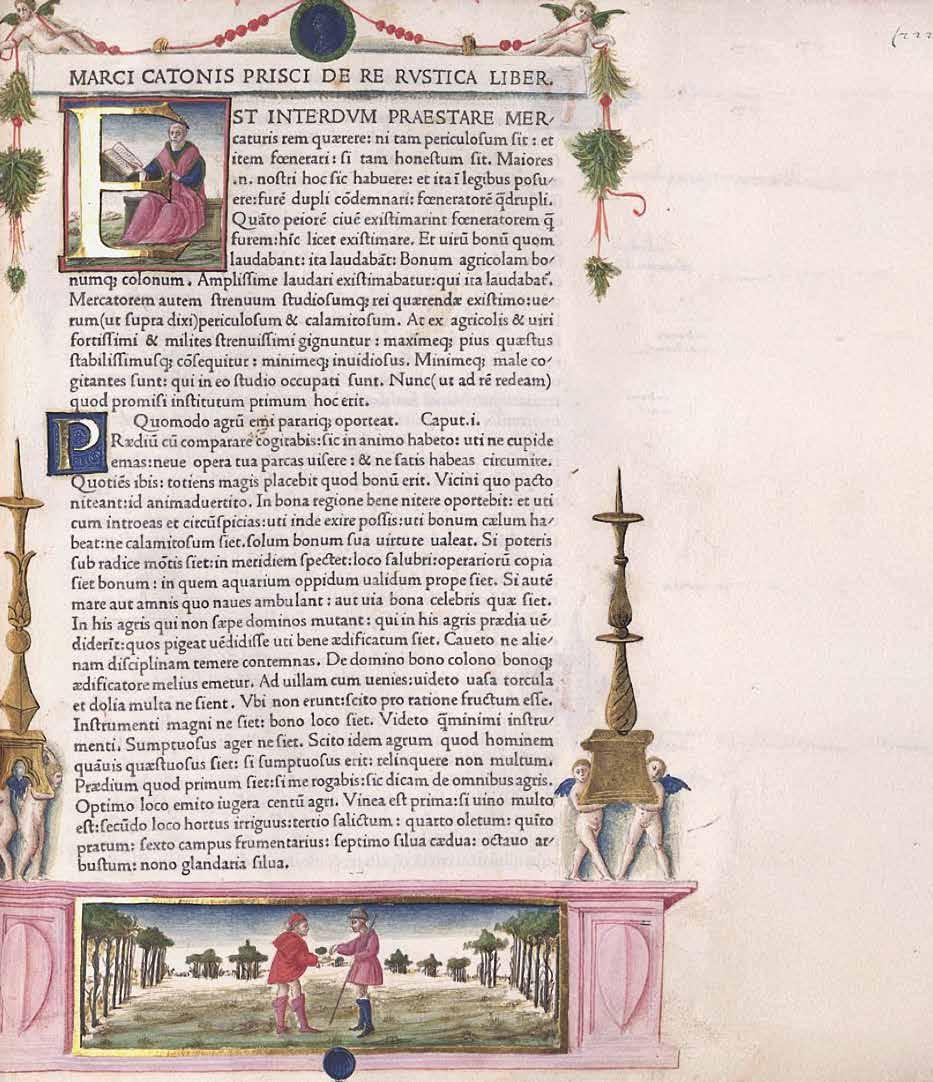 MARCI CATONIS PRISCI DE RE RVSTICA LIBER.
EST INTERDVM PRAESTARE MER⸗
caturis rem quærere: ni tam periculosum sit: et
item fœnerari: si tam honestum sit. Maiores
.n. nostri hoc sic habuere: et ita ī legibus posu⸗
ere: furē dupli cōdemnari: fœneratorē q̄drupli.
Quāto peiorē ciuē existimarint fœneratorem q̄
furem: hīc licet existimare. Et uirū bonū quom
laudabant: ita laudabāt: Bonum agricolam bo⸗
numq; colonum. Amplissime laudari existimabatur: qui ita laudabat̄.
Mercatorem autem strenuum studiosumq; rei quærendæ existimo: ue⸗
rum (ut supra dixi) periculosum & calamitosum. At ex agricolis & uiri
fortissimi & milites strenuissimi gignuntur: maximeq; pius quæstus
stabilissimusq; cōsequitur: minimeq; inuidiosus. Minimeq; male co⸗
gitantes sunt: qui in eo studio occupati sunt. Nunc (ut ad rē redeam)
quod promisi institutum primum hoc erit.
Quomodo agrū emi parariq; oporteat. Caput.i.
PRædiū cū comparare cogitabis: sic in animo habeto: uti ne cupide
emas: neue opera tua parcas uisere: & ne satis habeas circumire.
Quotiēs ibis: totiens magis placebit quod bonū erit. Vicini quo pacto
niteant: id animaduertito. In bona regione bene nitere oportebit: et uti
cum introeas et circūspicias: uti inde exire possis: uti bonum cælum ha⸗
beat: ne calamitosum siet. solum bonum sua uirtute ualeat. Si poteris
sub radice mōtis siet: in meridiem spectet: loco salubri: operariorū copia
siet bonum: in quem aquarium oppidum ualidum prope siet. Si autē
mare aut amnis quo naues ambulant: aut uia bona celebris quæ siet.
In his agris qui non sæpe dominos mutant: qui in his agris prædia uē⸗
diderīt: quos pigeat uēdidisse uti bene ædificatum siet. Caueto ne alie⸗
nam disciplinam temere contemnas. De domino bono colono bonoq;
ædificatore melius emetur. Ad uillam cum uenies: uideto uasa torcula
et dolia multa ne sient. Vbi non erunt: scito pro ratione fructum esse.
Instrumenti magni ne siet: bono loco siet. Videto q̄minimi instru⸗
menti. Sumptuosus ager ne siet. Scito idem agrum quod hominem
quāuis quæstuosus siet: si sumptuosus erit: relinquere non multum.
Prædium quod primum siet: si me rogabis: sic dicam de omnibus agris.
Optimo loco emito iugera centū agri. Vinea est prima: si uino multo
est: secūdo loco hortus irriguus: tertio salictum: quarto oletum: quīto
pratum: sexto campus frumentarius: septimo silua cædua: octauo ar⸗
bustum: nono glandaria silua.